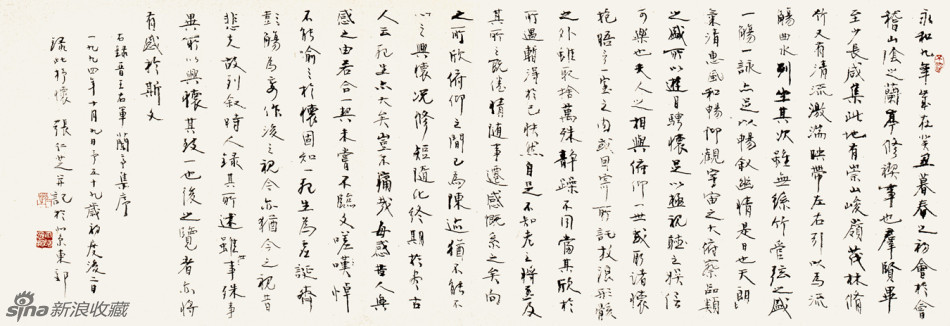 永和九年歲在癸丑暮春之初會於會
稽山陰之蘭亭修禊事也羣賢畢
至少長咸集此地有崇山峻嶺茂林脩
竹又有清流激湍映帶左右引以為流
觴曲水列坐其次雖無絲竹管弦之盛
一觴一詠亦足以暢敘幽情是日也天朗
氣清惠風和暢仰觀宇宙之大俯察品類
之盛所以遊目騁懷足以極視聽之娛信
可樂也夫人之相與俯仰一世或取諸懷
抱晤言一室之內或因寄所託放浪形骸
之外雖取捨萬殊靜躁不同當其欣於
所遇暫得於己快然自足不知老之將至及
其所之既倦情隨事遷感慨系之矣向
之所欣俯仰之間已為陳迹猶不能不
以之興懷況修短隨化終期於盡古
人云死生亦大矣豈不痛哉每感昔人興
感之由若合一契未嘗不臨文嗟嘆悼
不能喻之於懷固知一死生為虛誕齊
彭殤為妄作後之視今亦猶今之視昔
悲夫故列敘時人錄其所述雖事殊事
異所以興懷其致一也後之覽者亦將
有感於斯文
右錄晉王右軍蘭亭集序
一九九四年十月九日予五十九歲初度後二日
此抒懷 張仁芝并記於北京東郊
sina 新浪收藏